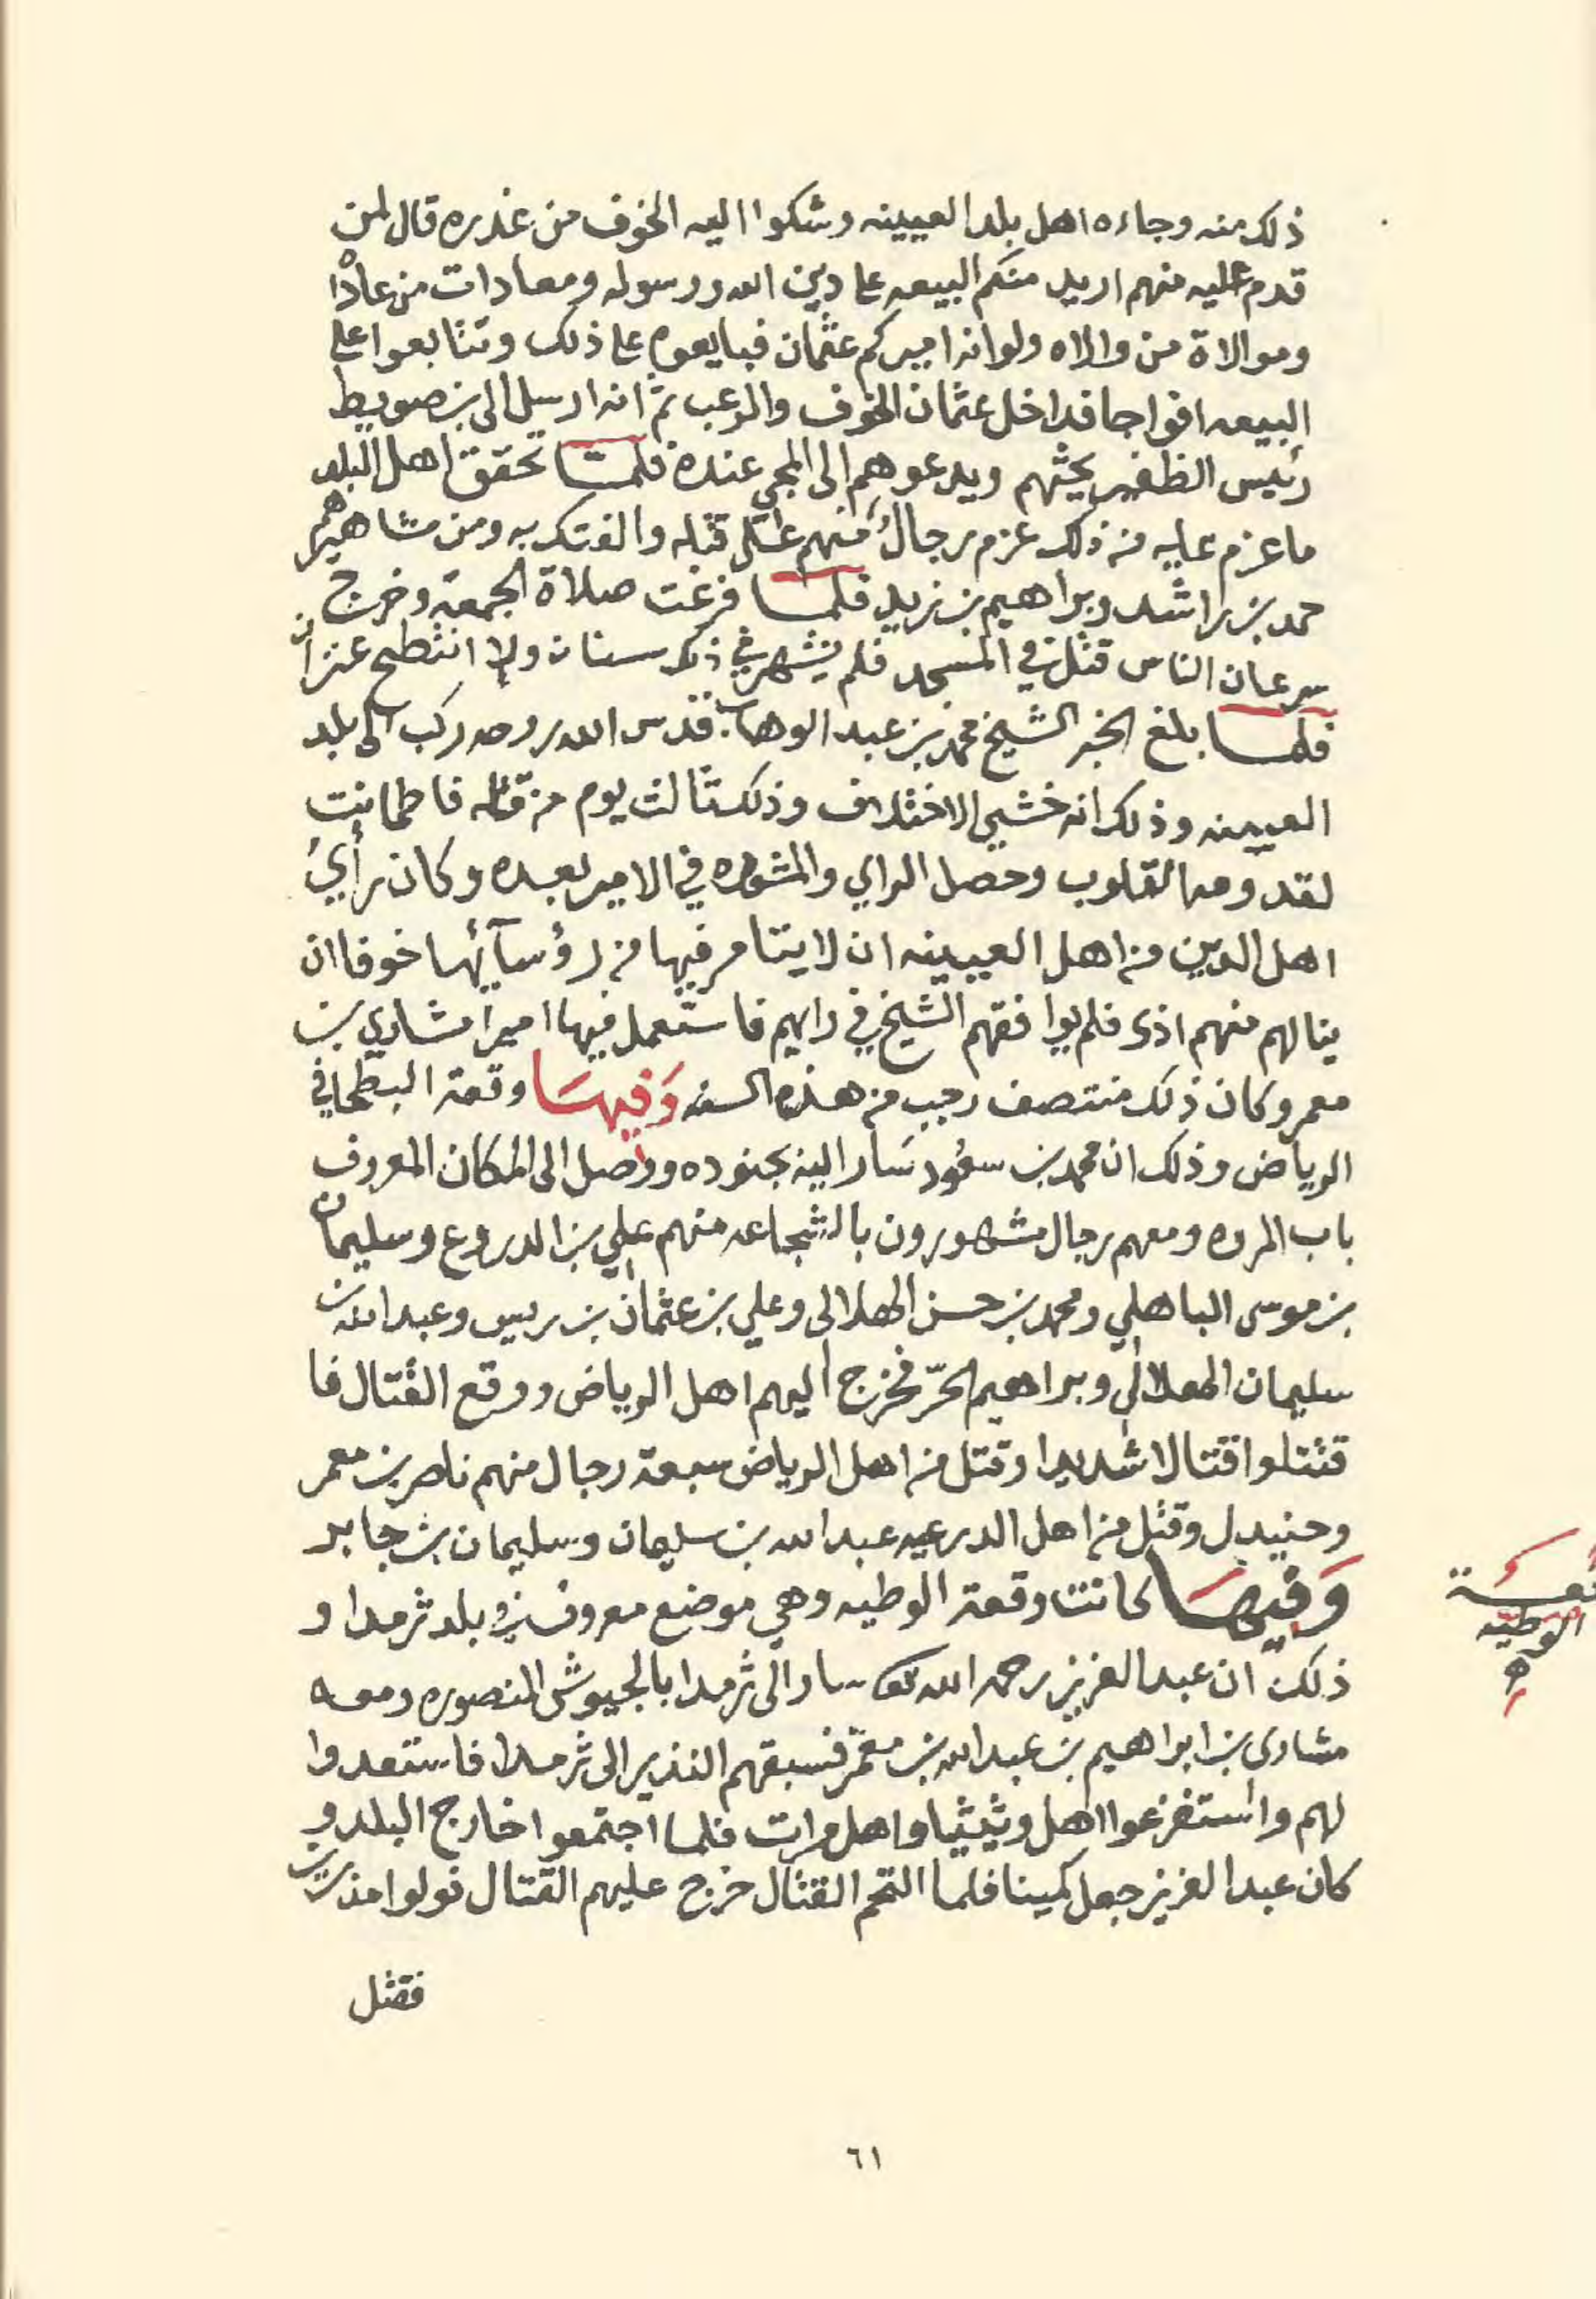 ذلك منه وجاءه اهل بلد العيينه وشكوا اليه الخوف من غدره قال لمن
قدم عليه منهم اريد منكم البيعه على دين الله ورسوله ومعادات من عادا
وموالاة من والاه ولو انه اميركم عثمان فبايعوه على ذلك وتتابعوا على
البيعه افواجا فداخل عثمان الخوف والرعب ثم انه ارسل الى بن صويط
رئيس الظفير يحثهم ويدعوهم الى المجي عنده فلما تحقق اهل البلد
ما عزم عليه من ذلك عزم رجالٌ منهم على قتله والفتك به ومن مشاهيرهم
حمد بن راشد وبراهيم بن زيد فلما فرغت صلاة الجمعة وخرج
سرعان الناس قتل في المسجد فلم يشهر في ذلك سنان ولا انتطح عنزان
فلما بلغ الخبر الشيخ محمد بن عبد الوهاب قدس الله روحه ركب الى بلد
العيينه وذلك انه خشي الاختلاف وذلك ثالث يوم من قتله فاطمانت
لقدومه القلوب وحصل الراي والمشوره في الامير بعده وكان رأيُ
اهل الدين من اهل العيينه ان لا يتامر فيها من رؤسآئها خوفا ان
ينالهم منهم اذى فلم يوافقهم الشيخ في رايهم فاستعمل فيها اميرا مشاري بن
معمر وكان ذلك منتصف رجب من هذه السنه وَفيهَا وقعة البطحا في
الرياض وذلك ان محمد بن سعُود سَار اليه بجنوده ووصل الى المكان المعروف
باب المروه ومعهم رجال مشهورون بالشجاعه منهم علي بن الدروع وسليمان
بن موسى الباهلي ومحمد بن حسن الهلالى وعلي بن عثمان بن ريس وعبد الله بن
سليمان الهلالي وبراهيم الحرّ فخرج اليهم اهل الرياض ووقع القتال فا
قتتلوا قتالا شديدا وقتل من اهل الرياض سبعة رجال منهم ناصر بن معمر
وحنيدل وقتل من اهل الدرعيه عبد الله بن سليمان وسليمان بن جابر
وَفيهَا كانت وقعة الوطيه وهي موضع معروف في بلد ثرمدا و
ذلك ان عبد العزيز رحمه الله تعالى سار الى ثرمدا بالجيوش المنصوره ومعه
مشارى بن ابراهيم بن عبد الله بن معمّر فسبقهم النذير الى ثرمدا فاستعدوا
لهم واستفزعوا اهل وثيثيا واهل مرات فلما اجتمعوا خارج البلد و
كان عبد العزيز جعل كمينا فلما التحم القتال خرج عليهم القتال فولوا مدبرين
وقعة
الوطيّه
فقتل
٦١